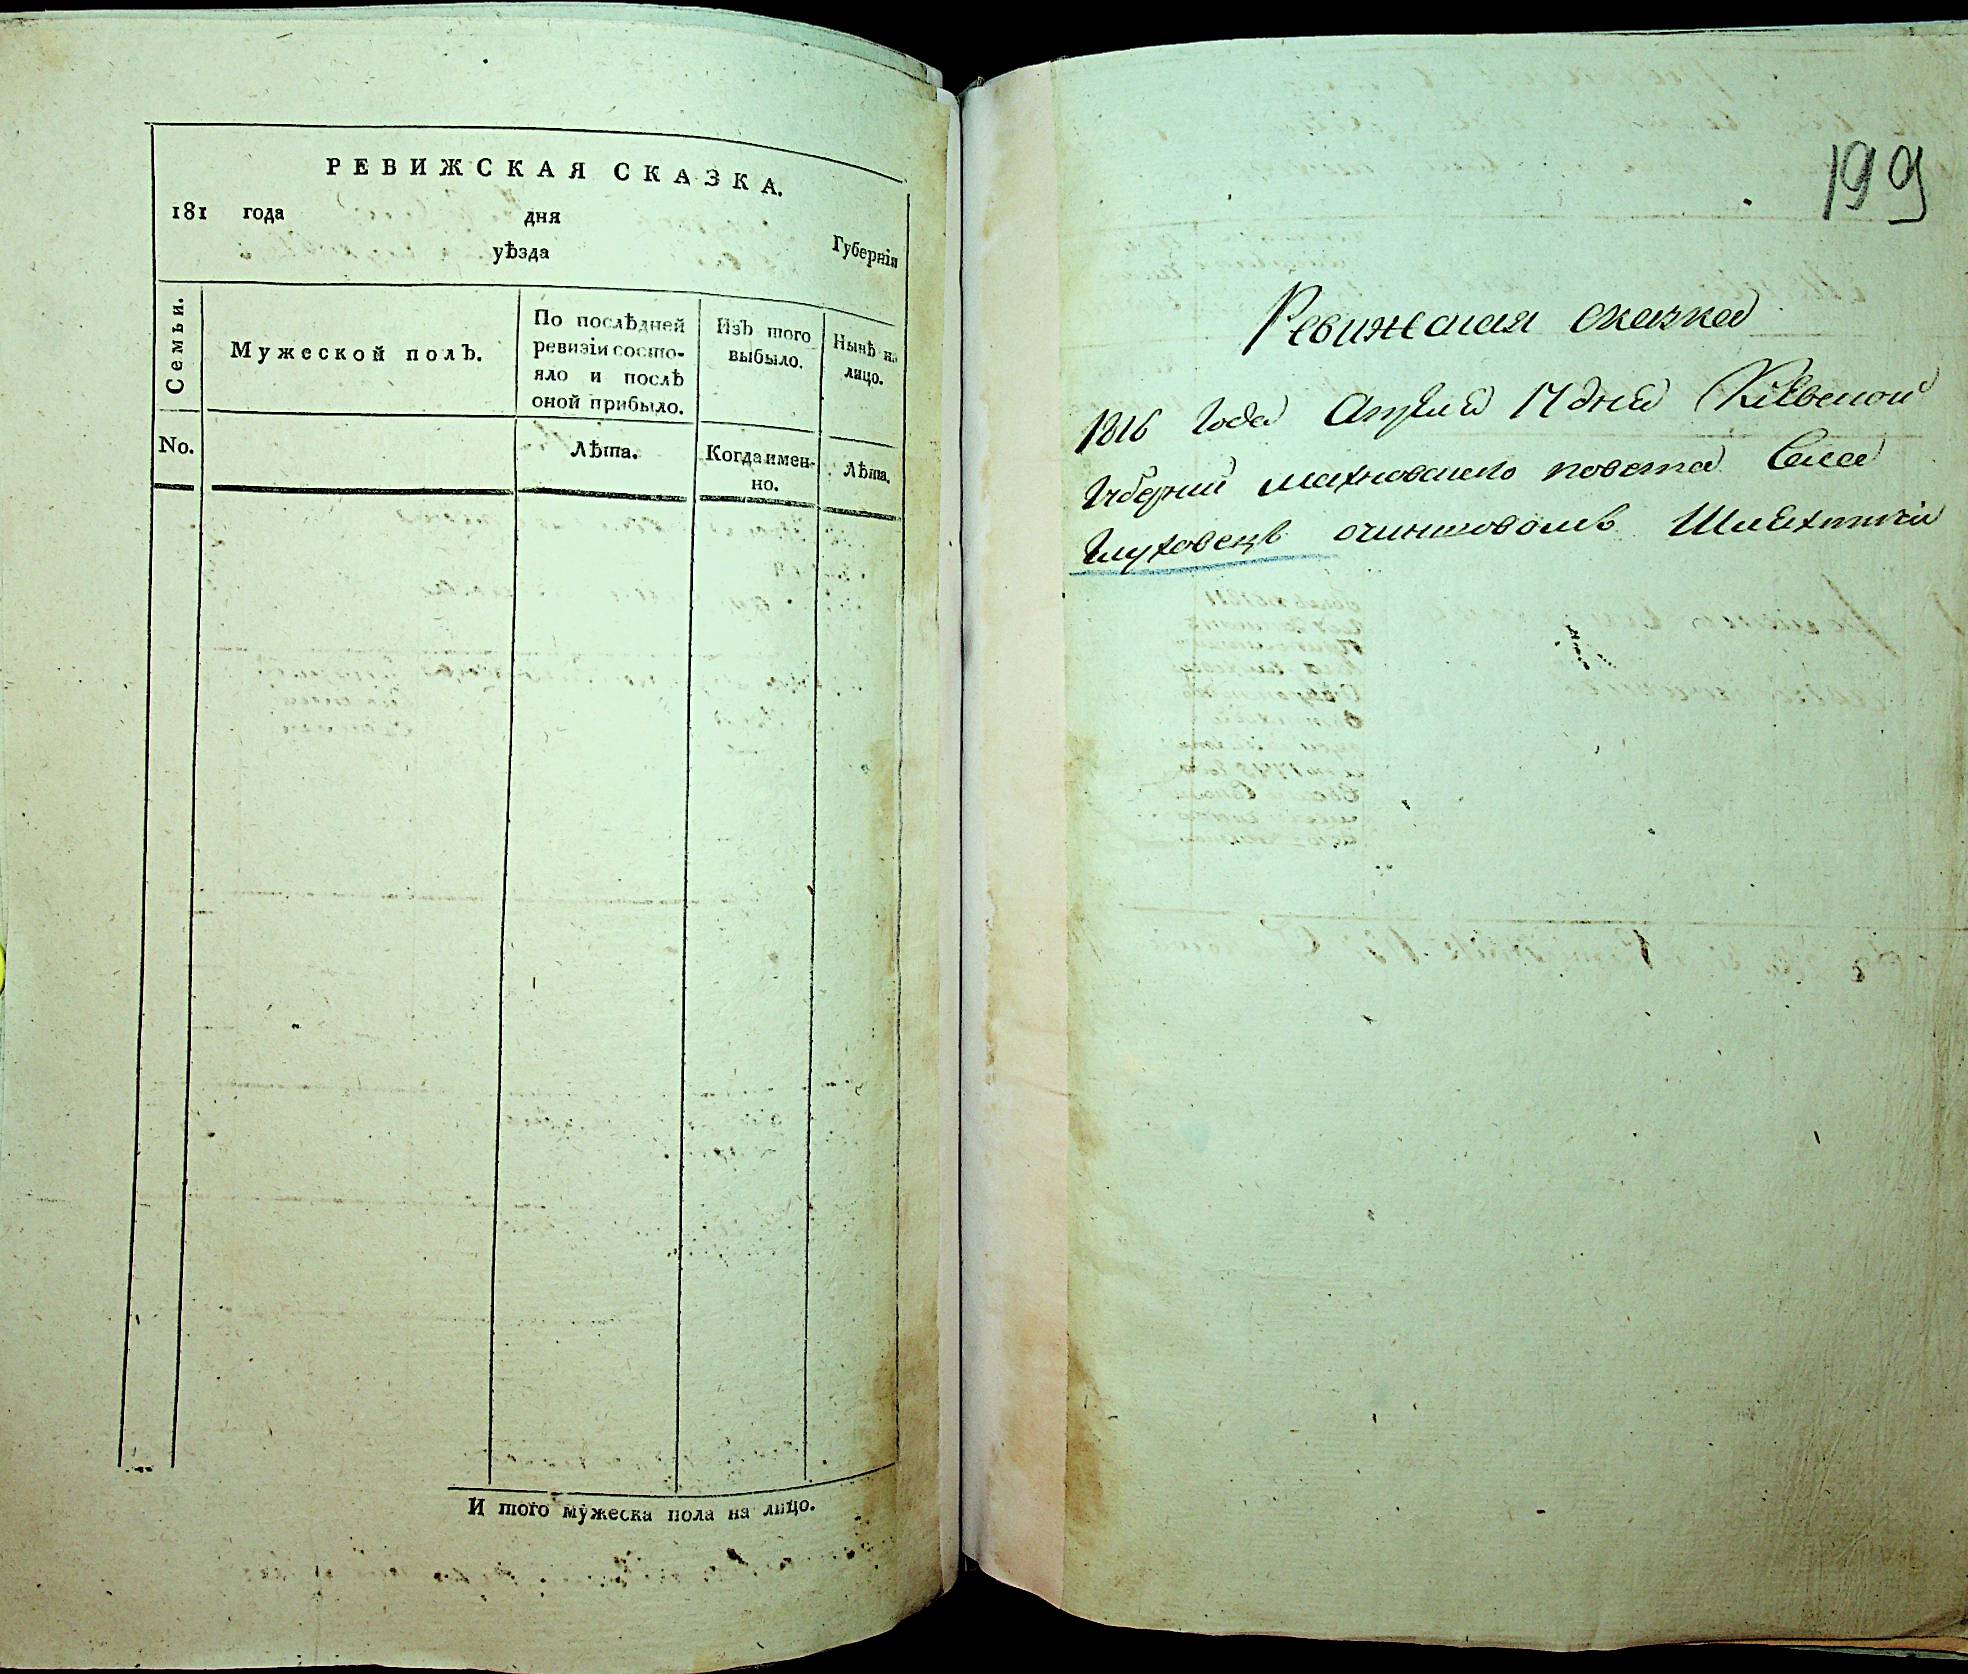 РЕВИЖСКАЯ СКАЗКА.
181 года дня
уѣзда Губерніи
Семьи.
Мужеской полъ.
По послѣдней
ревизіи состо-
яло и послѣ
оной прибыло.
Изъ того
выбыло.
Нынѣ на
лицо.
No.
Лѣта.
Когда имен-
но.
Лѣта.
И того мужеска пола на лицо.
199
Ревижская сказка
1816 Года Апреля 17 дня Киевской
Губернии махновского повета Села
Глуховецъ очиншовомъ Шляхтичи